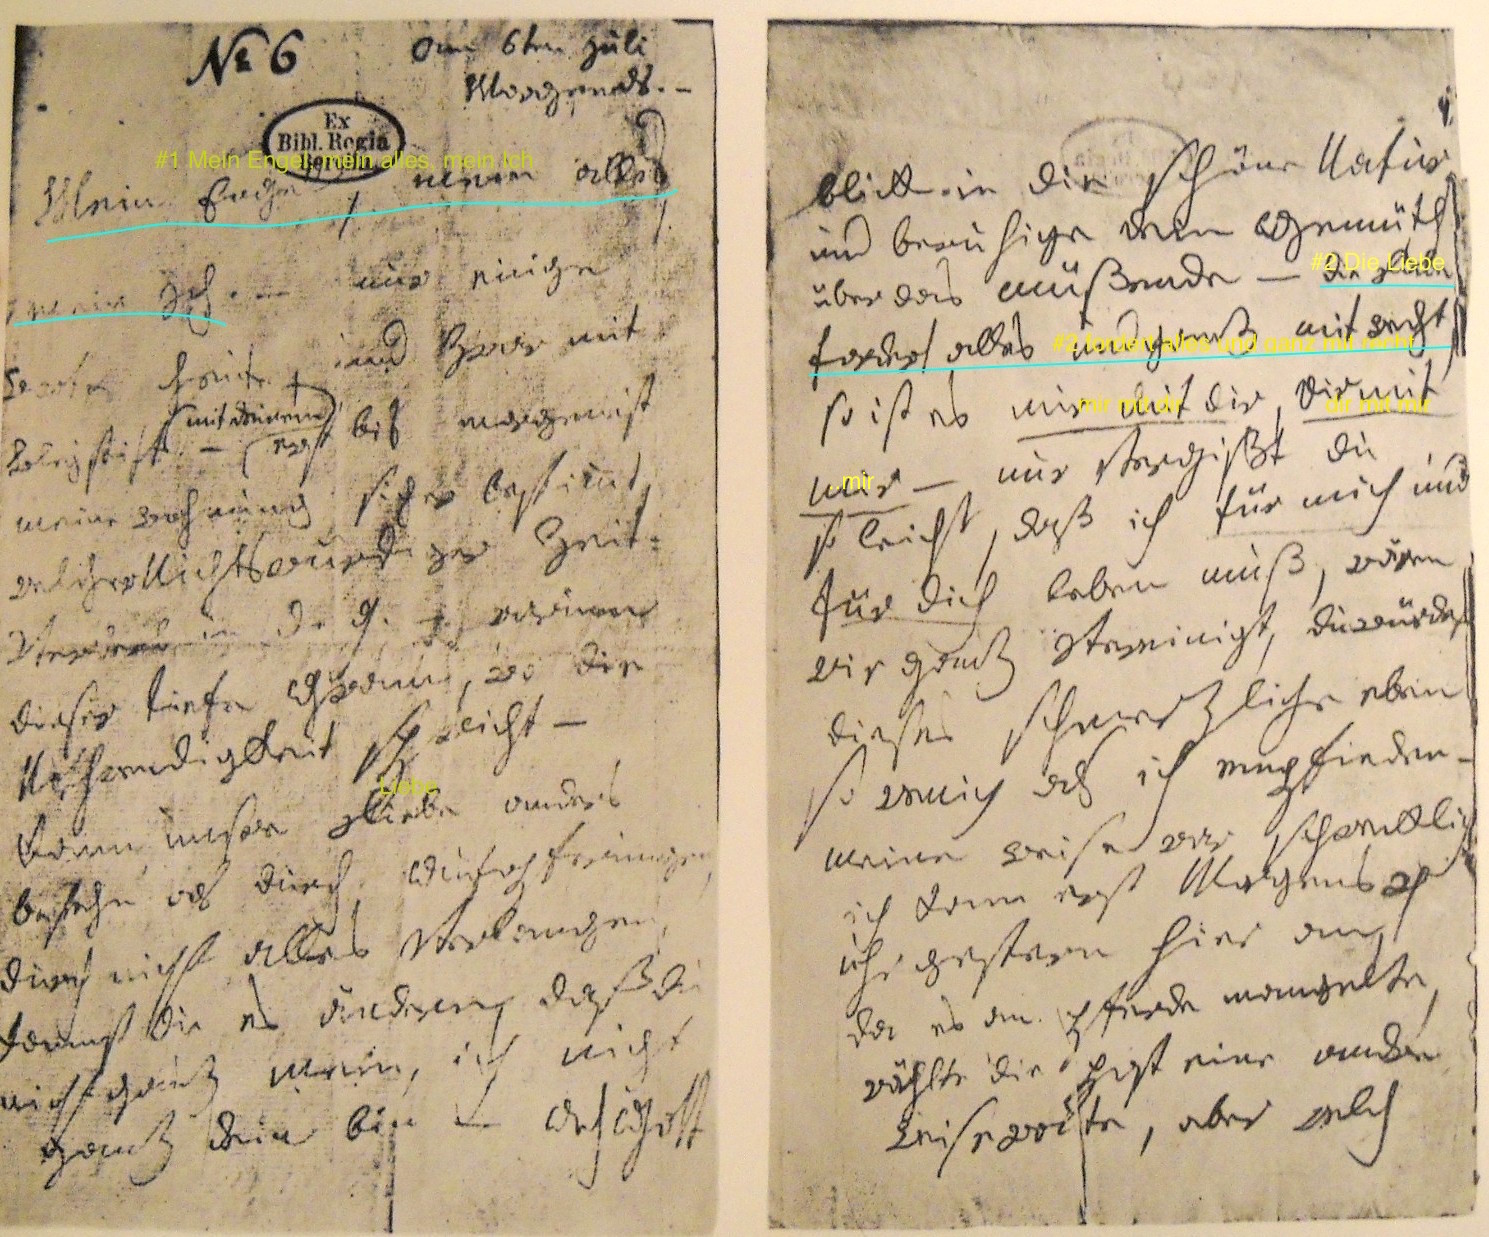 № 6
am 6ten Juli
Morgends. –
Ex
Bibl. Regia
Berolin
#1 Mein Engel, mein alles, mein Ich
Mein Engel, mein alles,
mein Ich. – nur einige
Worte heute, und zwar mit
Bleystift – (mit deinem) erst bis morgen ist
meine wohnung sicher bestimt,
welcher Nichtswürdiger Zeit-
Verderb in d. g. – warum
dieser tiefe Gram, wo die
Nothwendigkeit spricht –
Liebe
Kann unsre Liebe anders
bestehn als durch Aufopferungen,
durch nicht alles Verlangen,
kannst du es ändern, daß du
nicht ganz mein, ich nicht
ganz dein bin – Ach Gott
blick in die schöne Natur
und beruhige dein Gemüth
#2 Die Liebe
über das müßende – die Liebe
#2 fordert alles und ganz mit recht
fordert alles und ganz mit recht,
mir mit dir
dir mit mir
so ist es mir mit dir, dir mit
mir
mir – nur Vergißt du
so leicht, daß ich für mich und
für dich leben muß, wären
wir ganz Vereinigt, du würdest
dieses schmerzliche eben
so wenig als ich empfinden –
meine reise war schrecklich
ich kam erst Morgens 4
uhr gestern hier an,
da es an Pferde mangelte,
wählte die Post eine andre
reiseroute, aber welch